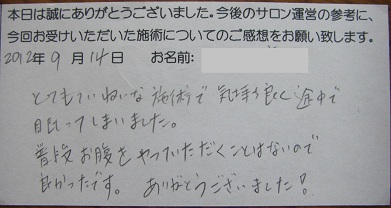 本日は誠にありがとうございました。今後のサロン運営の参考に、
今回お受けいただいた施術についてのご感想をお願い致します。
2012年9月14日 お名前:
とてもていねいな施術で気持ち良く途中で
眠ってしまいました。
普段お腹をやっていただくことはないので
良かったです。 ありがとうございました!